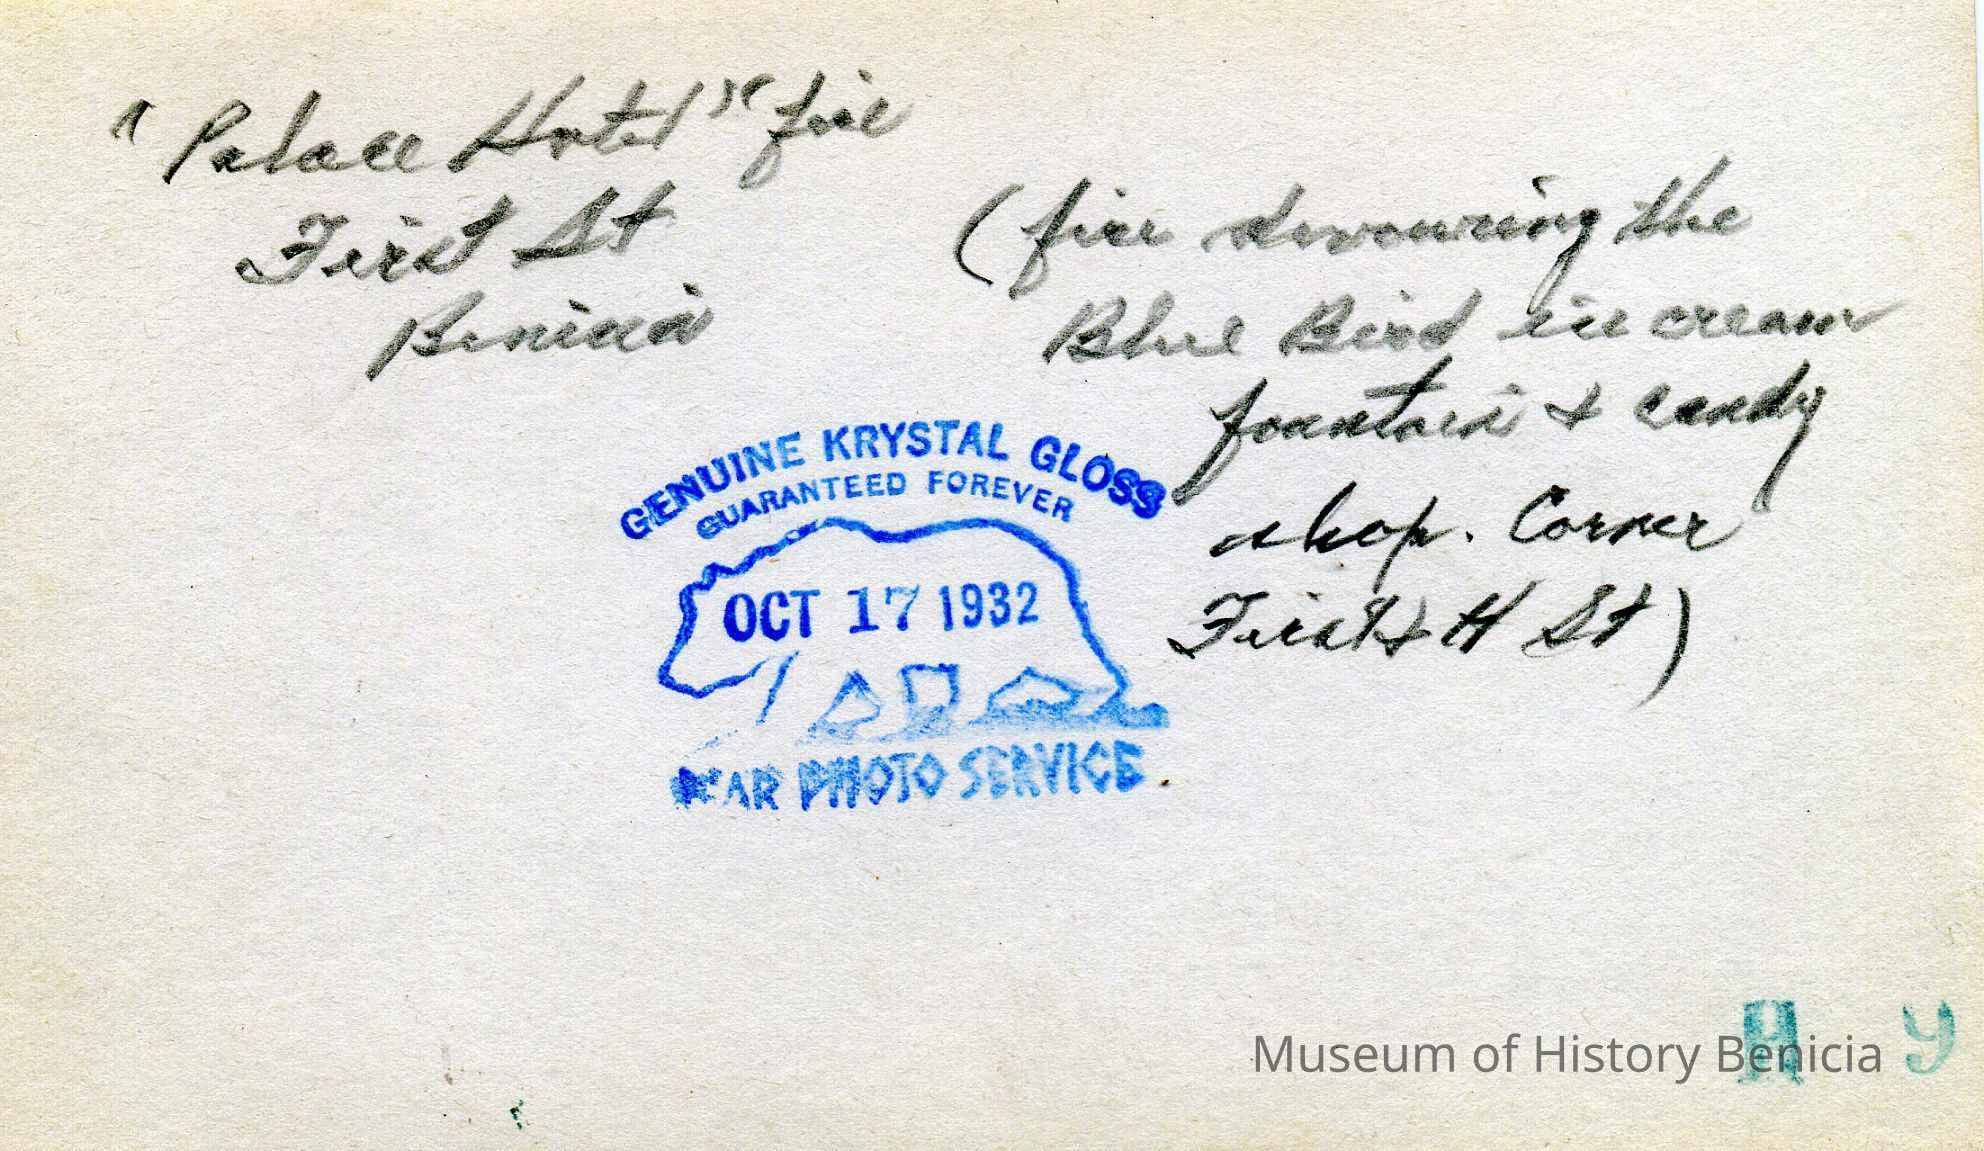 "Palace Hotel" fire
First St
Benicia
(fire devouring the
Blue Bird ice cream
fountain & candy
shop. Corner
First & H St)
GENUINE KRYSTAL GLOSS
GUARANTEED FOREVER
OCT 17 1932
BEAR PHOTO SERVICE
H 9
Museum of History Benicia